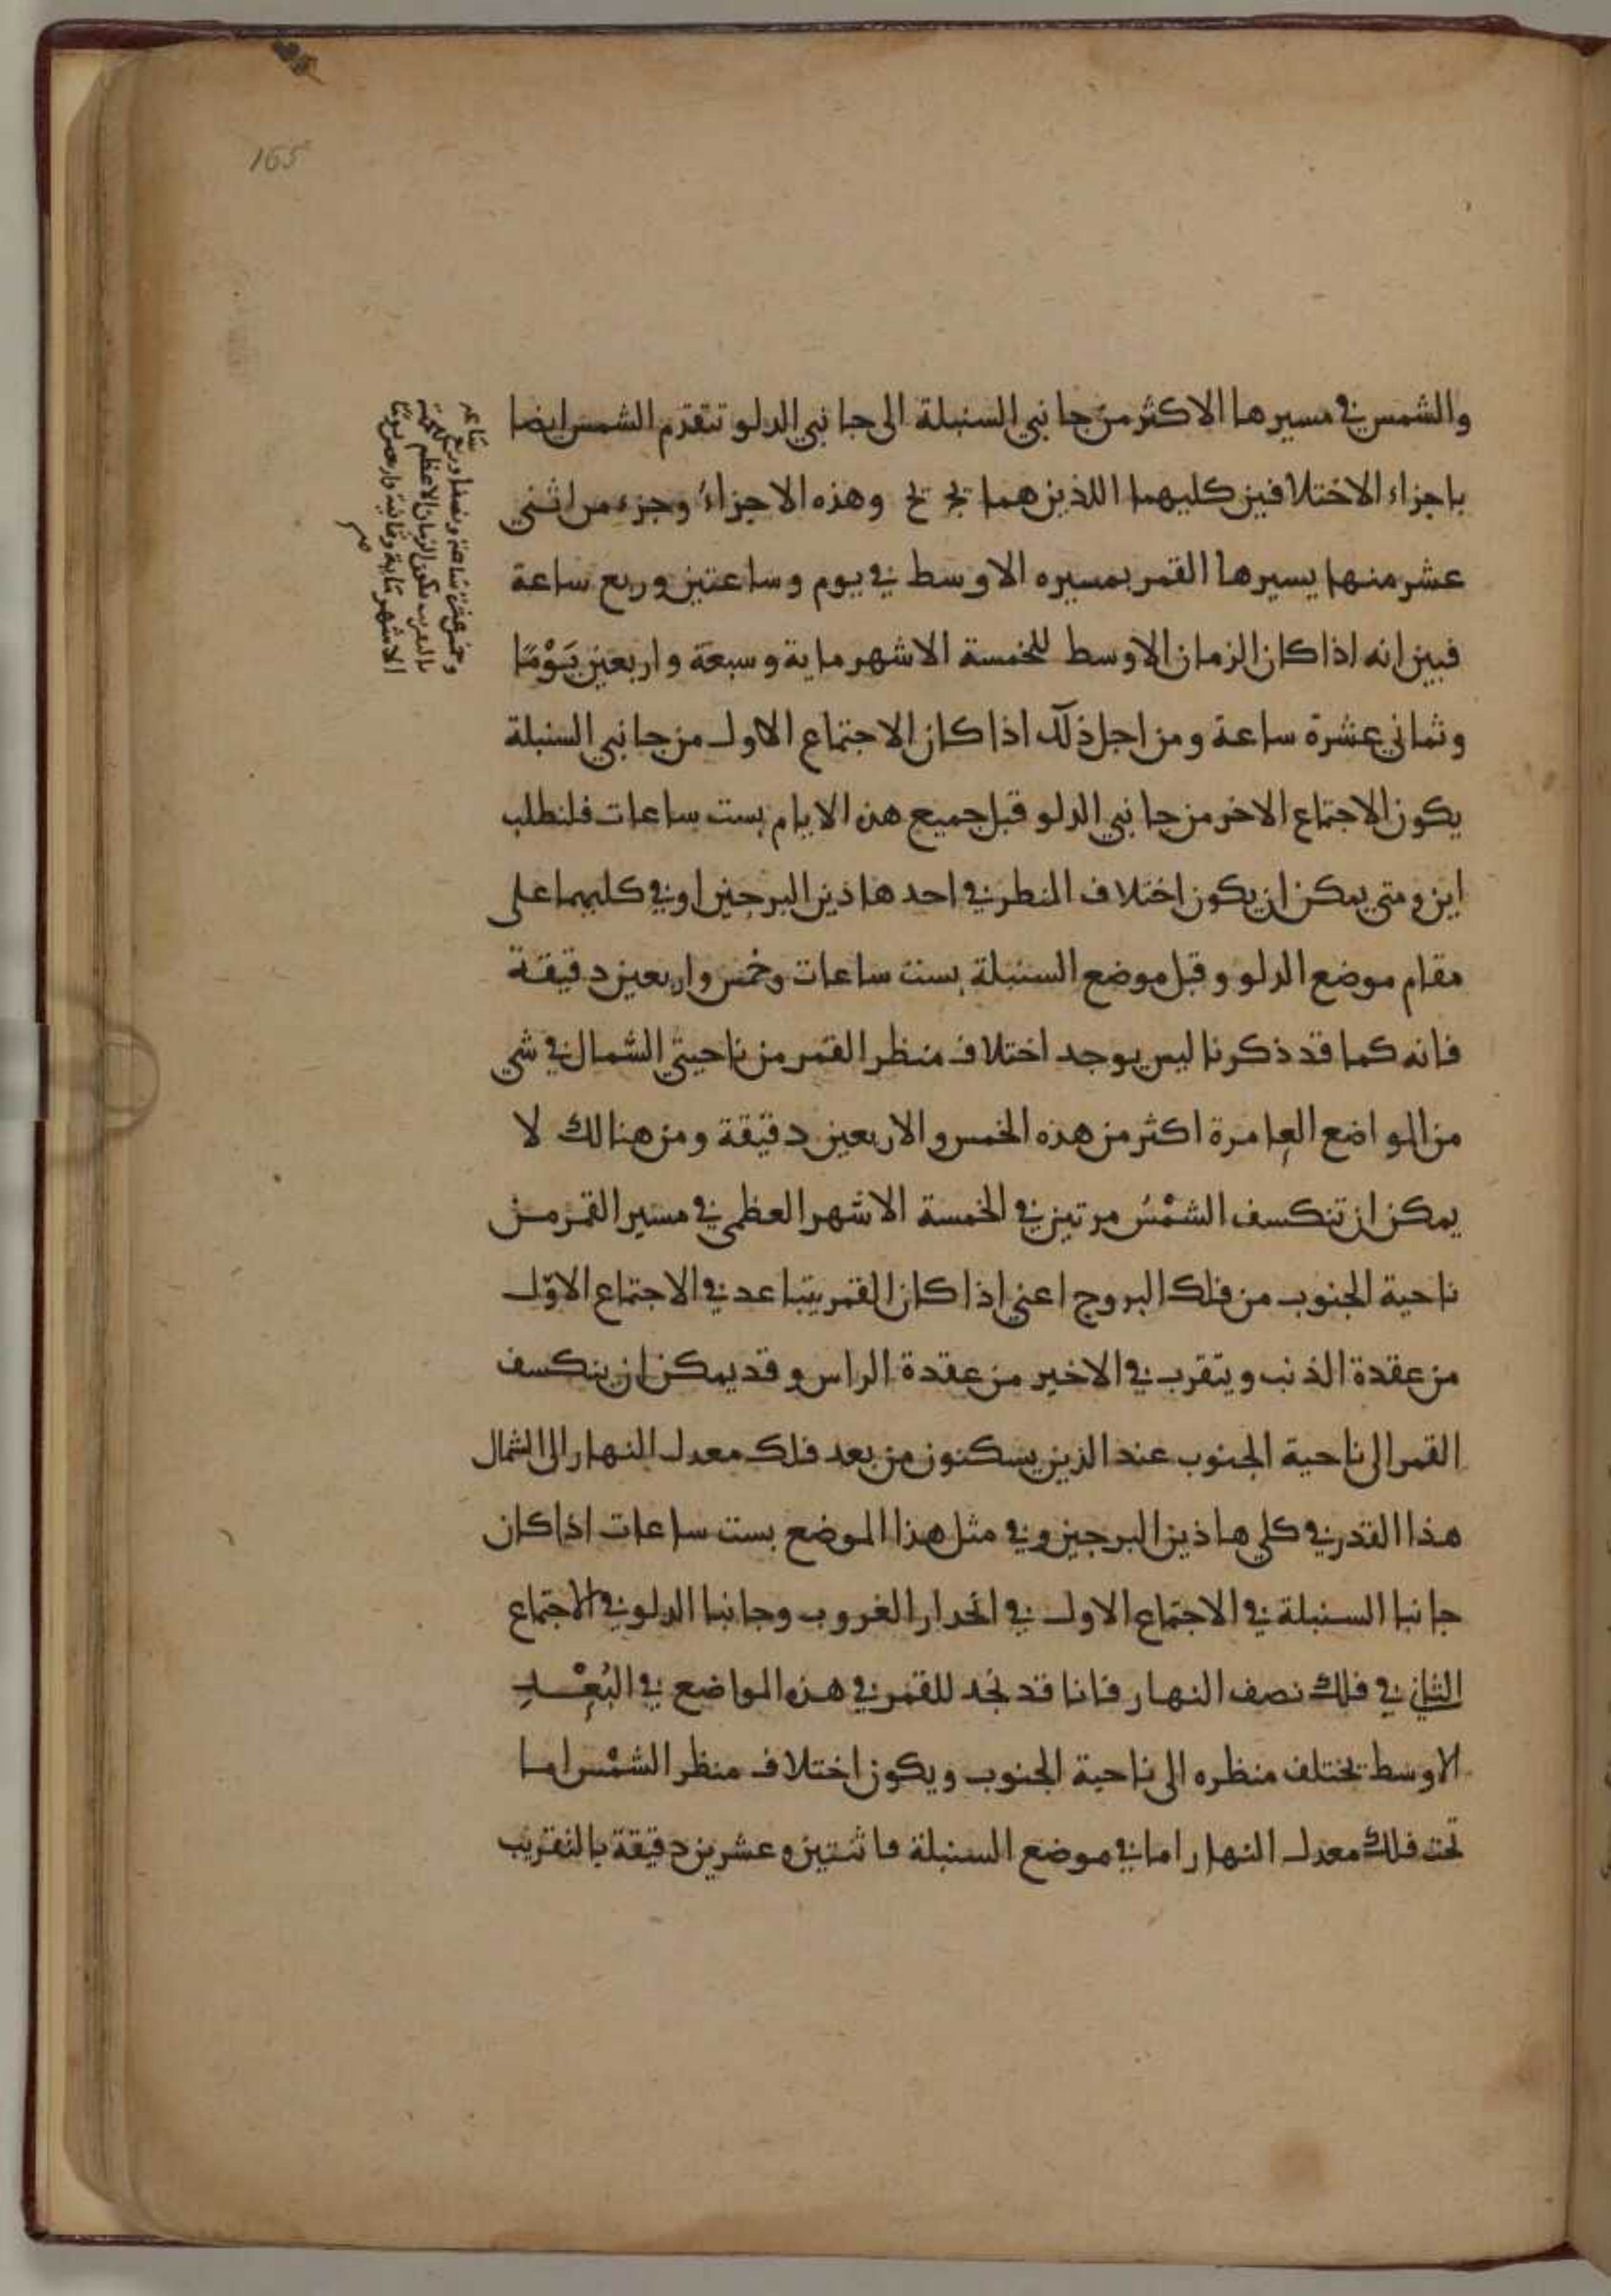 165
والشمس في مسيرها الاكثر من جانبي السنبلة الى جانبي الدلو تتقدم الشمس ايضا
باجزاء الاختلافين كليهما اللذين هما وهذه الاجزاء وجزء من اثني
عشر منها يسيرها القمر بمسيره الاوسط في يوم وساعتين وربع ساعة
فبين انه اذا كان الزمان الاوسط للخمسة الاشهر ماية وسبعة واربعين يَوْمًا
وثماني عشرة ساعة ومن اجل ذلك اذا كان الاجتماع الاول من جانبي السنبلة
يكون الاجتماع الاخر من جانبي الدلو قبل جميع هذه الايام بست ساعات فلنطلب
اين ومتى يمكن ان يكون اختلاف المنظر في احد هاذين البرجين او في كليهما على
مقام موضع الدلو وقبل موضع السنبلة بست ساعات وخمس واربعين دقيقة
فانه كما قد ذكرنا ليس يوجد اختلاف منظر القمر من ناحيتي الشمال في شي
من المواضع العامرة اكثر من هذه الخمس والاربعين دقيقة ومن هنالك لا
يمكن ان تنكسف الشمْسُ مرتين في الخمسة الاشهر العظمى في مسير القمر من
ناحية الجنوب من فلك البروج اعني اذا كان القمر يتباعد في الاجتماع الاوّل
من عقدة الذنب ويتقرب في الاخير من عقدة الراس وقد يمكن ان ينكسف
القمر الى ناحية الجنوب عند الذين يسكنون من بعد فلك معدل النهار الى الشمال
هذا القدر في كلي هاذين البرجين وفي مثل هذا الموضع بست ساعات اذا كان
جانبا السنبلة في الاجتماع الاول في انحدار الغروب وجانبا الدلو في الاجتماع
الثاني في فلك نصف النهار فانا قد نجد للقمر في هذه المواضع في البُعْدِ
الاوسط يختلف منظره الى ناحية الجنوب ويكون اختلاف منظر الشمْس اما
تحت فلك معدل النهار اما في موضع السنبلة فاثنتين وعشرين دقيقة بالتقريب
وخمس عشرة ساعة ونصفا وربع ساعة
بالتقريب يكون الزمان الاعظم لخمسة
الاشهر ماية وثمانية واربعين يوما